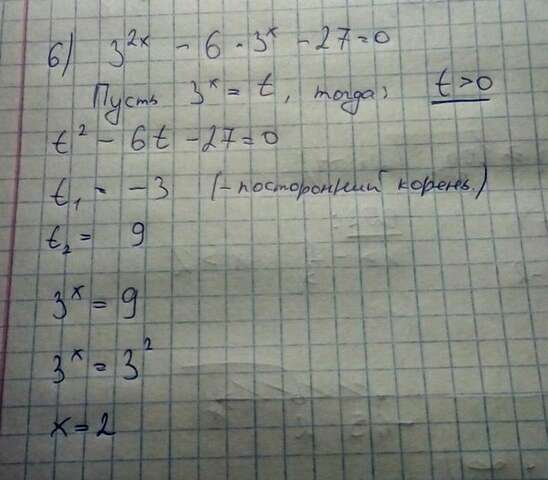 б) 3^{2x} - 6 · 3^x - 27 = 0
Пусть 3^x = t, тогда: t > 0
t^2 - 6t - 27 = 0
t_1 = -3 (- посторонний корень.)
t_2 = 9
3^x = 9
3^x = 3^2
x = 2